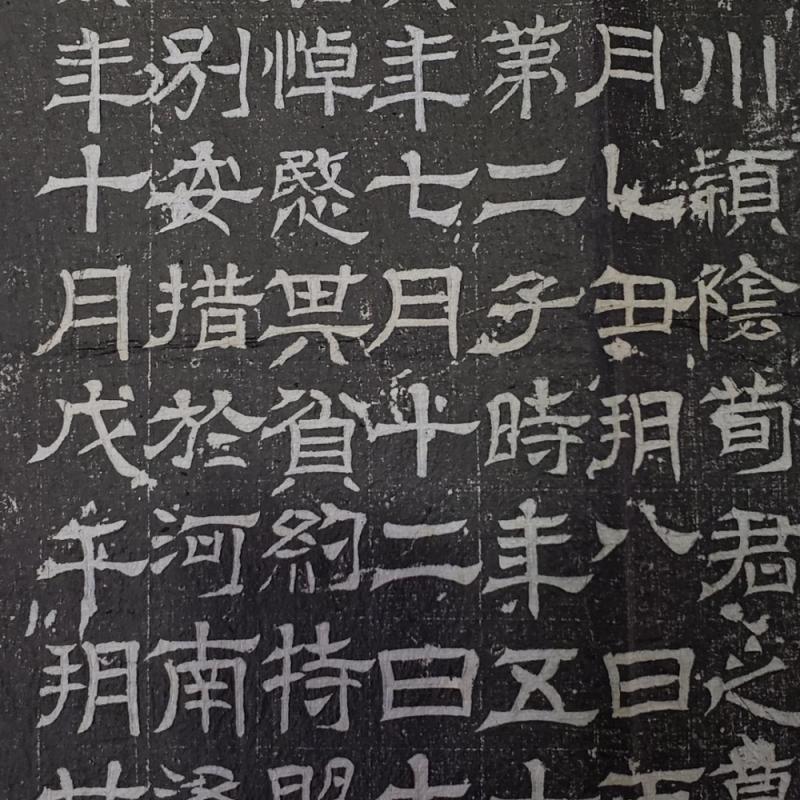 川潁陰荀君之
月乙丑朔八日丙
第二子時年五十
年七月十二日大
悼愍其貧約特
別安措於河南洛
年十月戊午朔廿